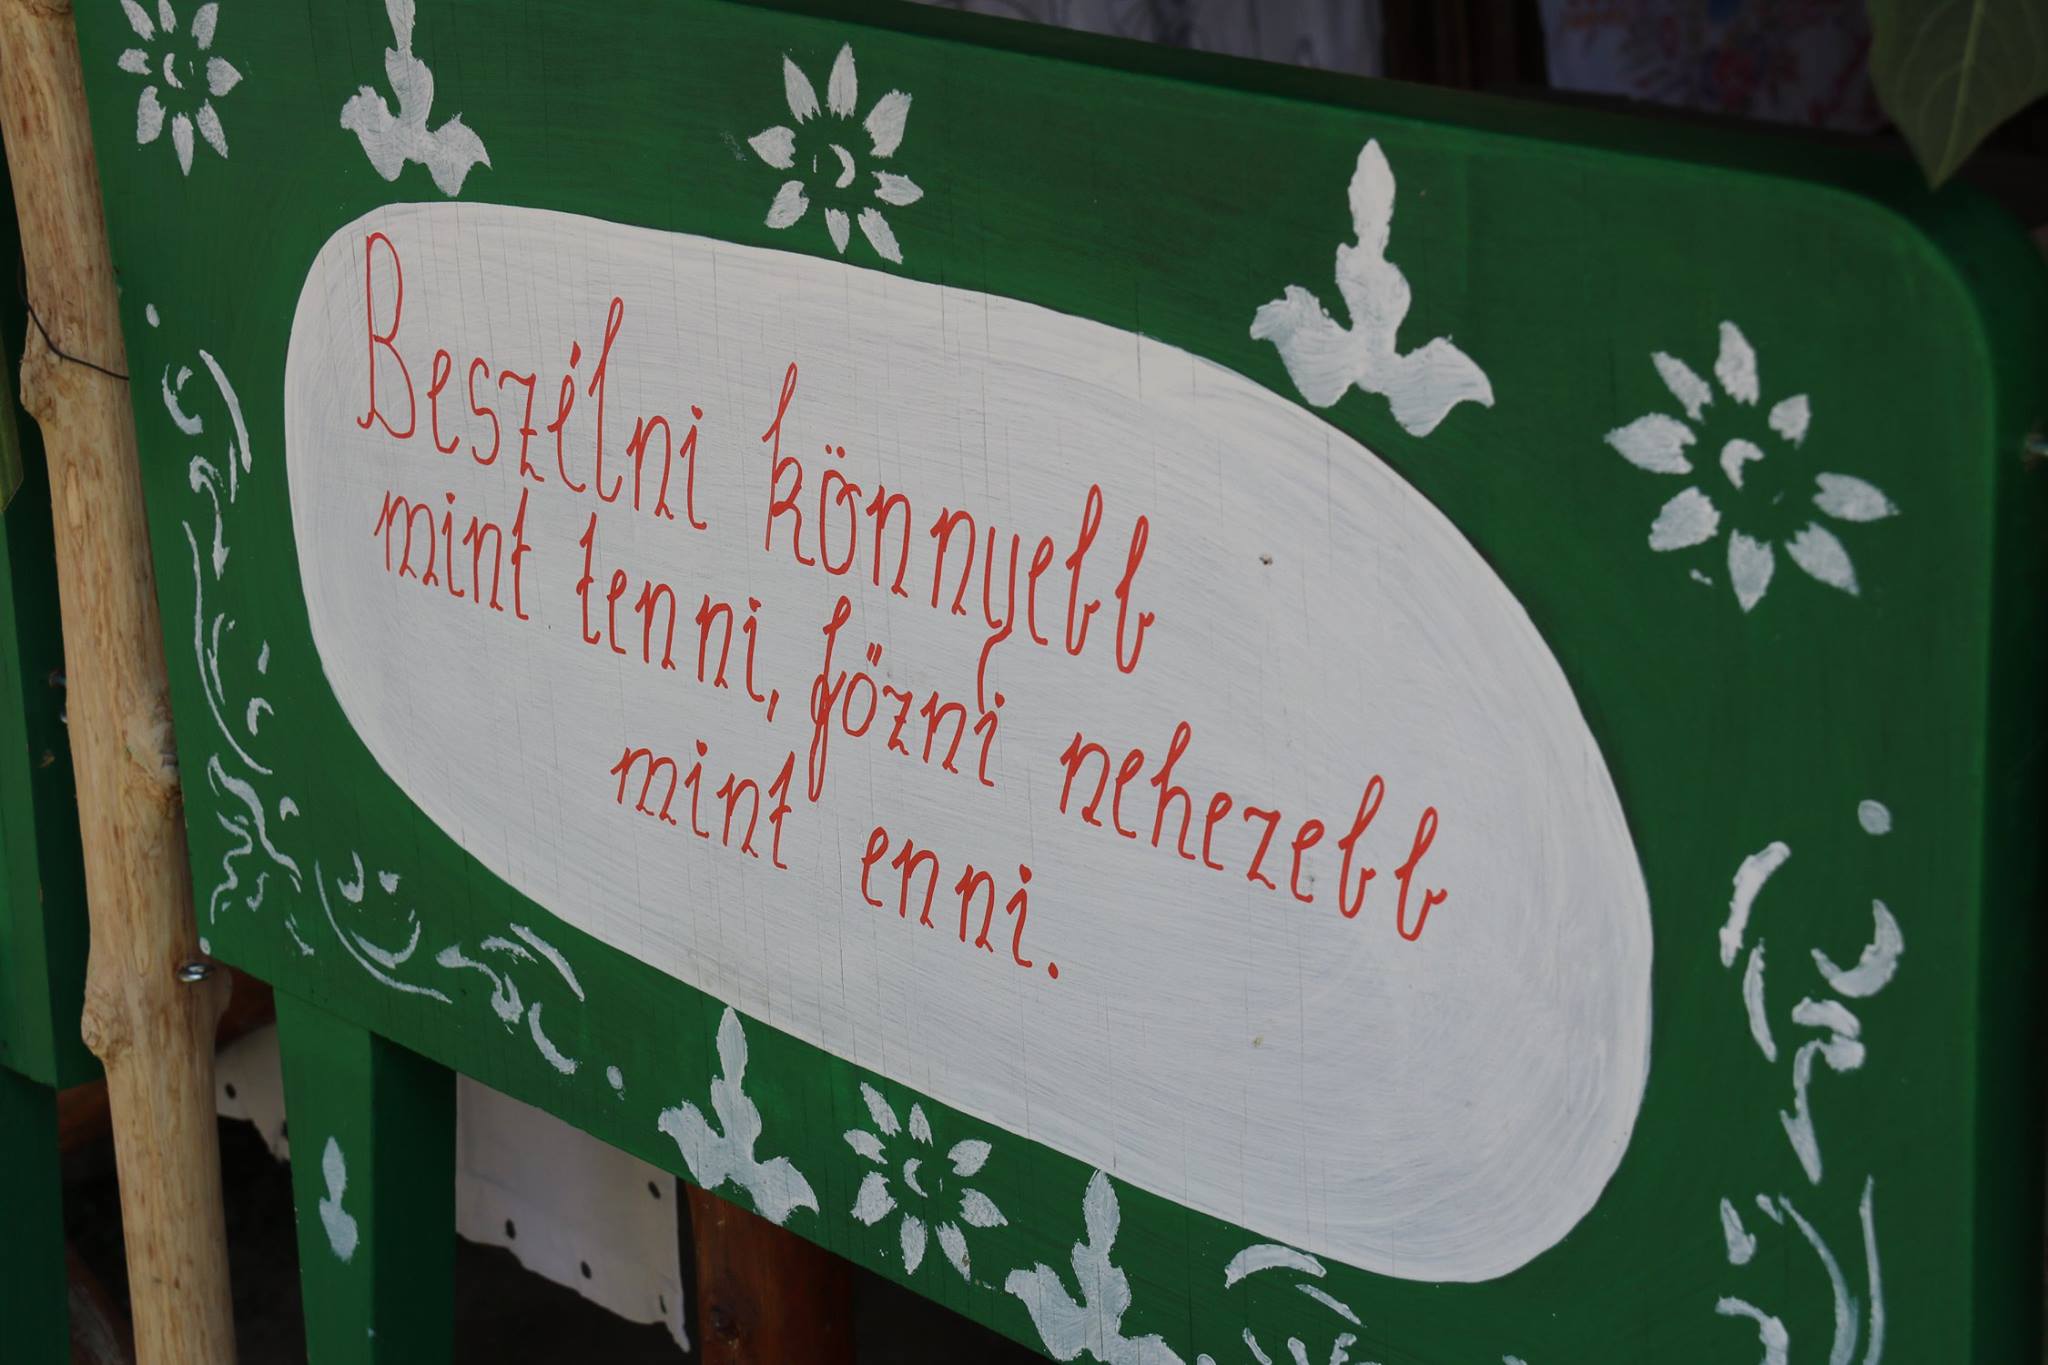 Beszélni könnyebb
mint tenni, főzni nehezebb
mint enni.